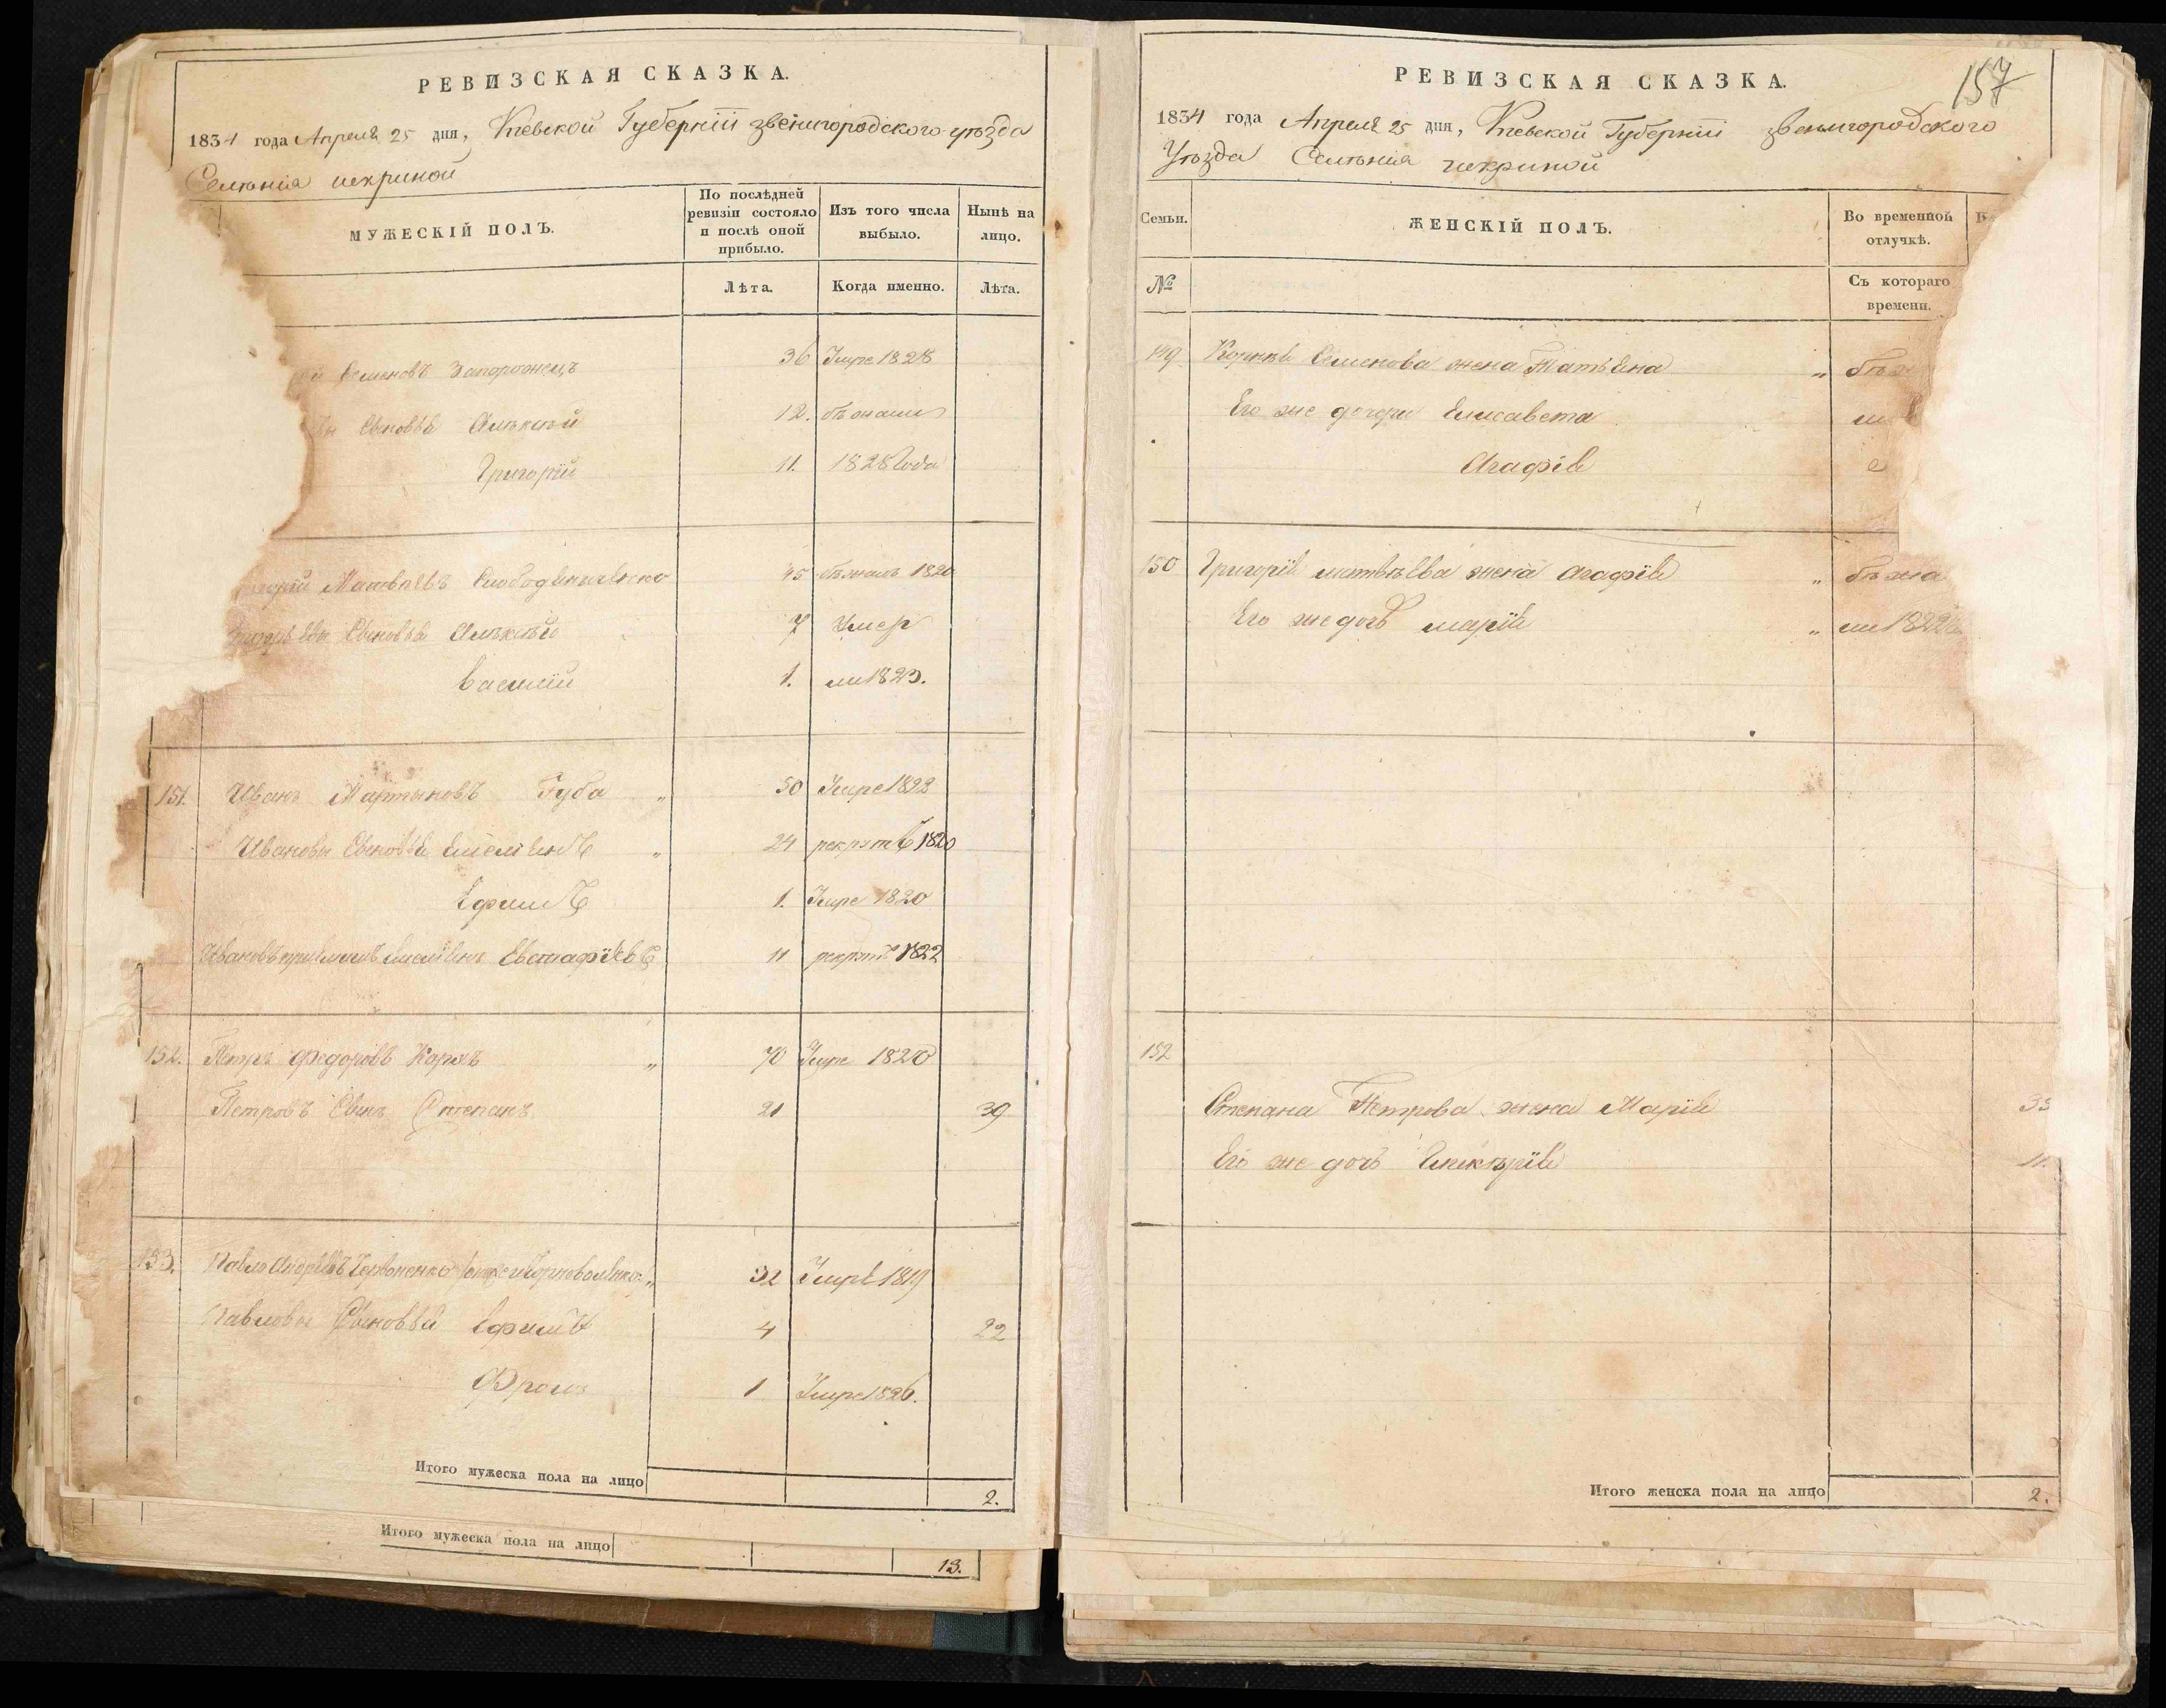 РЕВИЗСКАЯ СКАЗКА.
1834 года Апреля 25 дня, Киевской Губернiи звенигородского уѣзда
Селѣнiя чекриной
МУЖЕСКIЙ ПОЛЪ.
По послѣдней ревизiи состояло и послѣ оной прибыло.
Изъ того числа выбыло.
Нынѣ на лицо.
Лѣта.
Когда именно.
Лѣта.
Семеновъ Запорожнецъ 36 Умре 1828
Сыновья Алѣксѣй 12. бѣжали
Григорiй 11. 1828 Года
Матвѣевъ 45 бѣжалъ 1820
Сыновья Алѣксѣй 7 Умер
василiй 1. ли 1823.
151. Иванъ Мартыновъ Губа „ 50 Умре 1822
Ивановы Сыновья Емелѣянъ „ 24 рекрутъ 1820
Ефимъ 1. Умре 1820
Ивановъ Емелѣянъ Евстафiевъ 11 рекрутъ 1822
152. Пѣтръ Федоровъ Коржъ „ 70 Умре 1820
Петровъ Сынъ Степанъ 21 39
153. Павло Андрѣевъ „ 32 Умре 1819
Павловы Сыновья Ефимъ 4 22
Фролъ 1 Умре 1826.
Итого мужеска пола на лицо 2.
Итого мужеска пола на лицо 13.
157
РЕВИЗСКАЯ СКАЗКА.
1834 года Апреля 25 дня, Киевской Губернiи звенигородского
Уѣзда Селѣнiя чекриной
Семьи.
ЖЕНСКIЙ ПОЛЪ.
Во временной отлучкѣ.
№
Съ котораго времени.
149 Корнѣя Семенова жена Татѣяна „
Его же дочери Елисавета
Агафiя
150 Григорiя матвѣева жена агафiя „ бѣжа
Его же дочь марiя „ ли 1822
152
Степана Петрова жена Марiя 33
Его же дочь 11.
Итого женска пола на лицо 2.